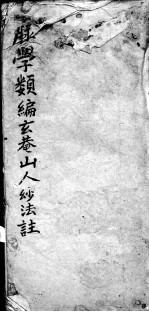 脉學類編玄菴山人紗法註